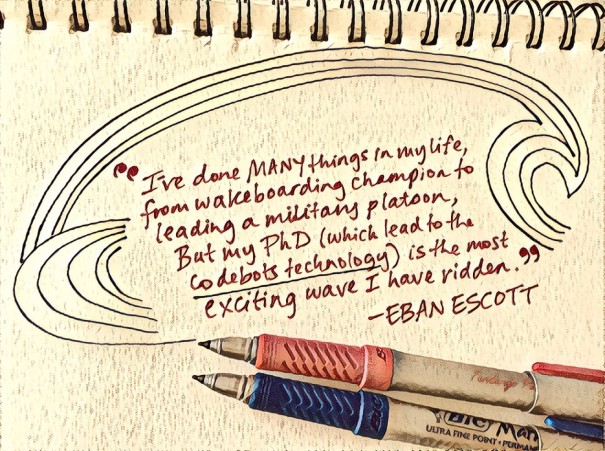 "I've done MANY things in my life,
from wakeboarding champion to
leading a military platoon,
But my PhD (which lead to the
codebots technology) is the most
exciting wave I have ridden."
-EBAN ESCOTT
BIC
BIC Mar
ULTRA FINE POINT • PERMAN